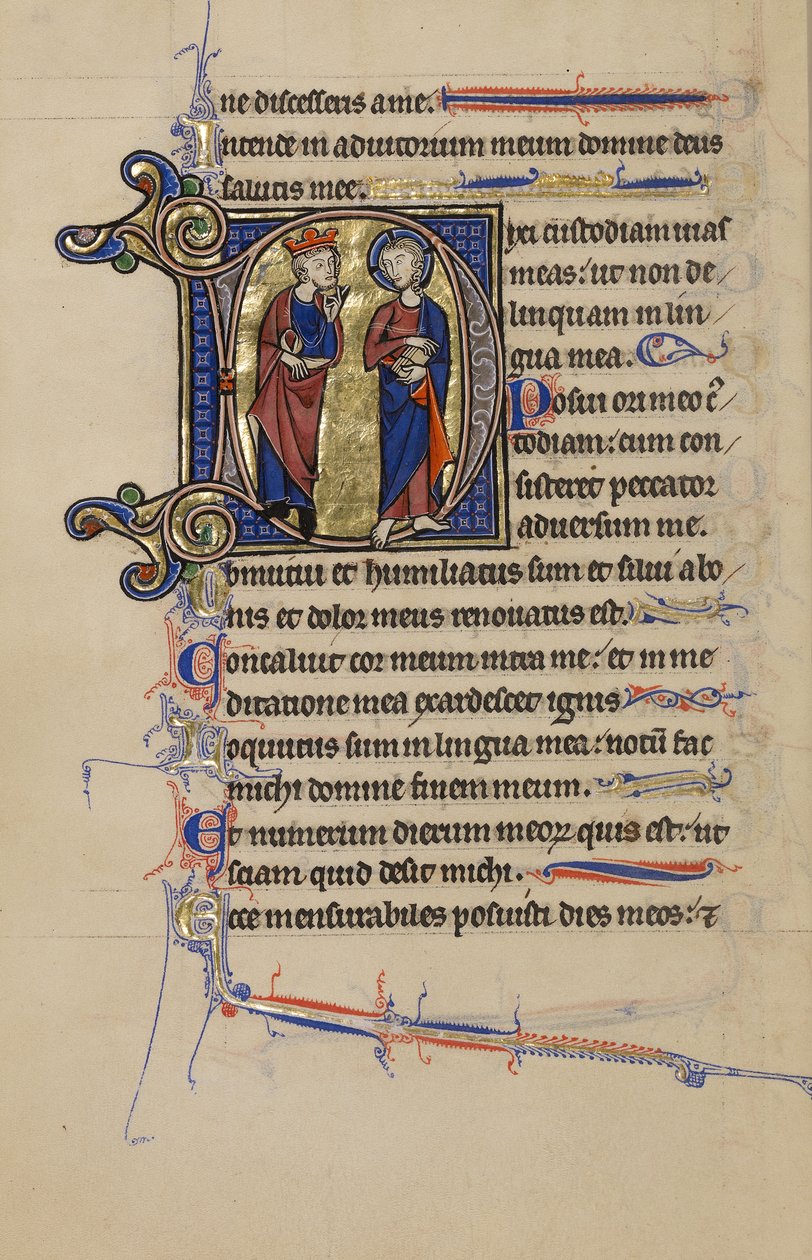 ne discesseris a me.
Intende in adiutorium meum domine deus
salutis mee.
Dixi custodiam uias
meas: ut non de/
linquam in lin/
gua mea.
Posui ori meo c̄/
todiam: cum con/
sisteret peccator
aduersum me.
Obmutui et humiliatus sum et silui abo/
nis et dolor meus renouatus est.
Concaluit cor meum intra me: et in me/
ditatione mea exardescet ignis
Loquutus sum in lingua mea: notū fac
michi domine finem meum.
Et numerum dierum meoꝝ quis est: ut
sciam quid desit michi.
Ecce mensurabiles posuisti dies meos: ⁊